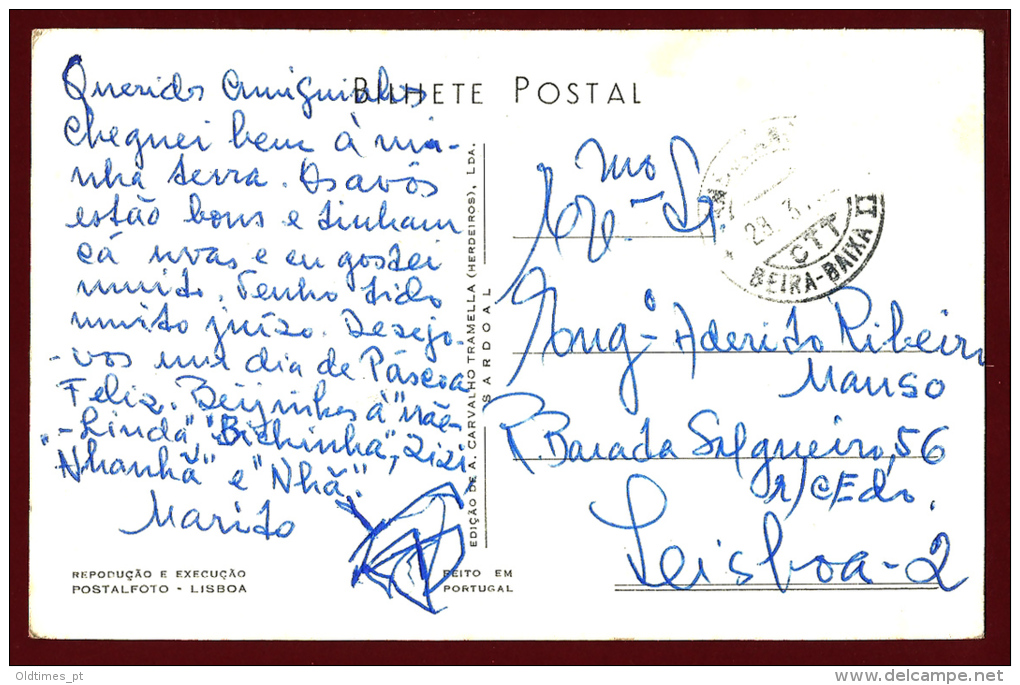 BILHETE POSTAL
Queridos Amiguinhos
cheguei bem à mi-
nha terra. Os avós
estão bons e tinham
cá uvas e eu gostei
muito. Tenho tido
muito juízo. Desejo-
-vos um dia de Páscoa
Feliz. Beijinhos à "mãe-
-Linda", "Bichinha", Zizi
"Nhanhã" e "Nhã".
Marito
REPODUÇÃO E EXECUÇÃO
POSTALFOTO - LISBOA
FEITO EM
PORTUGAL
EDIÇÃO DE A. CARVALHO TRAMELLA (HERDEIROS), LDA.
SARDOAL
28. 3.
CTT
BEIRA-BAIXA II
Exmo. Sr.
Eng.º Aderito Ribeiro
Manso
R. Barata Salgueiro, 56
r/c Edo.
Leisboa-2
Oldtimes_pt
www.delcampe.net